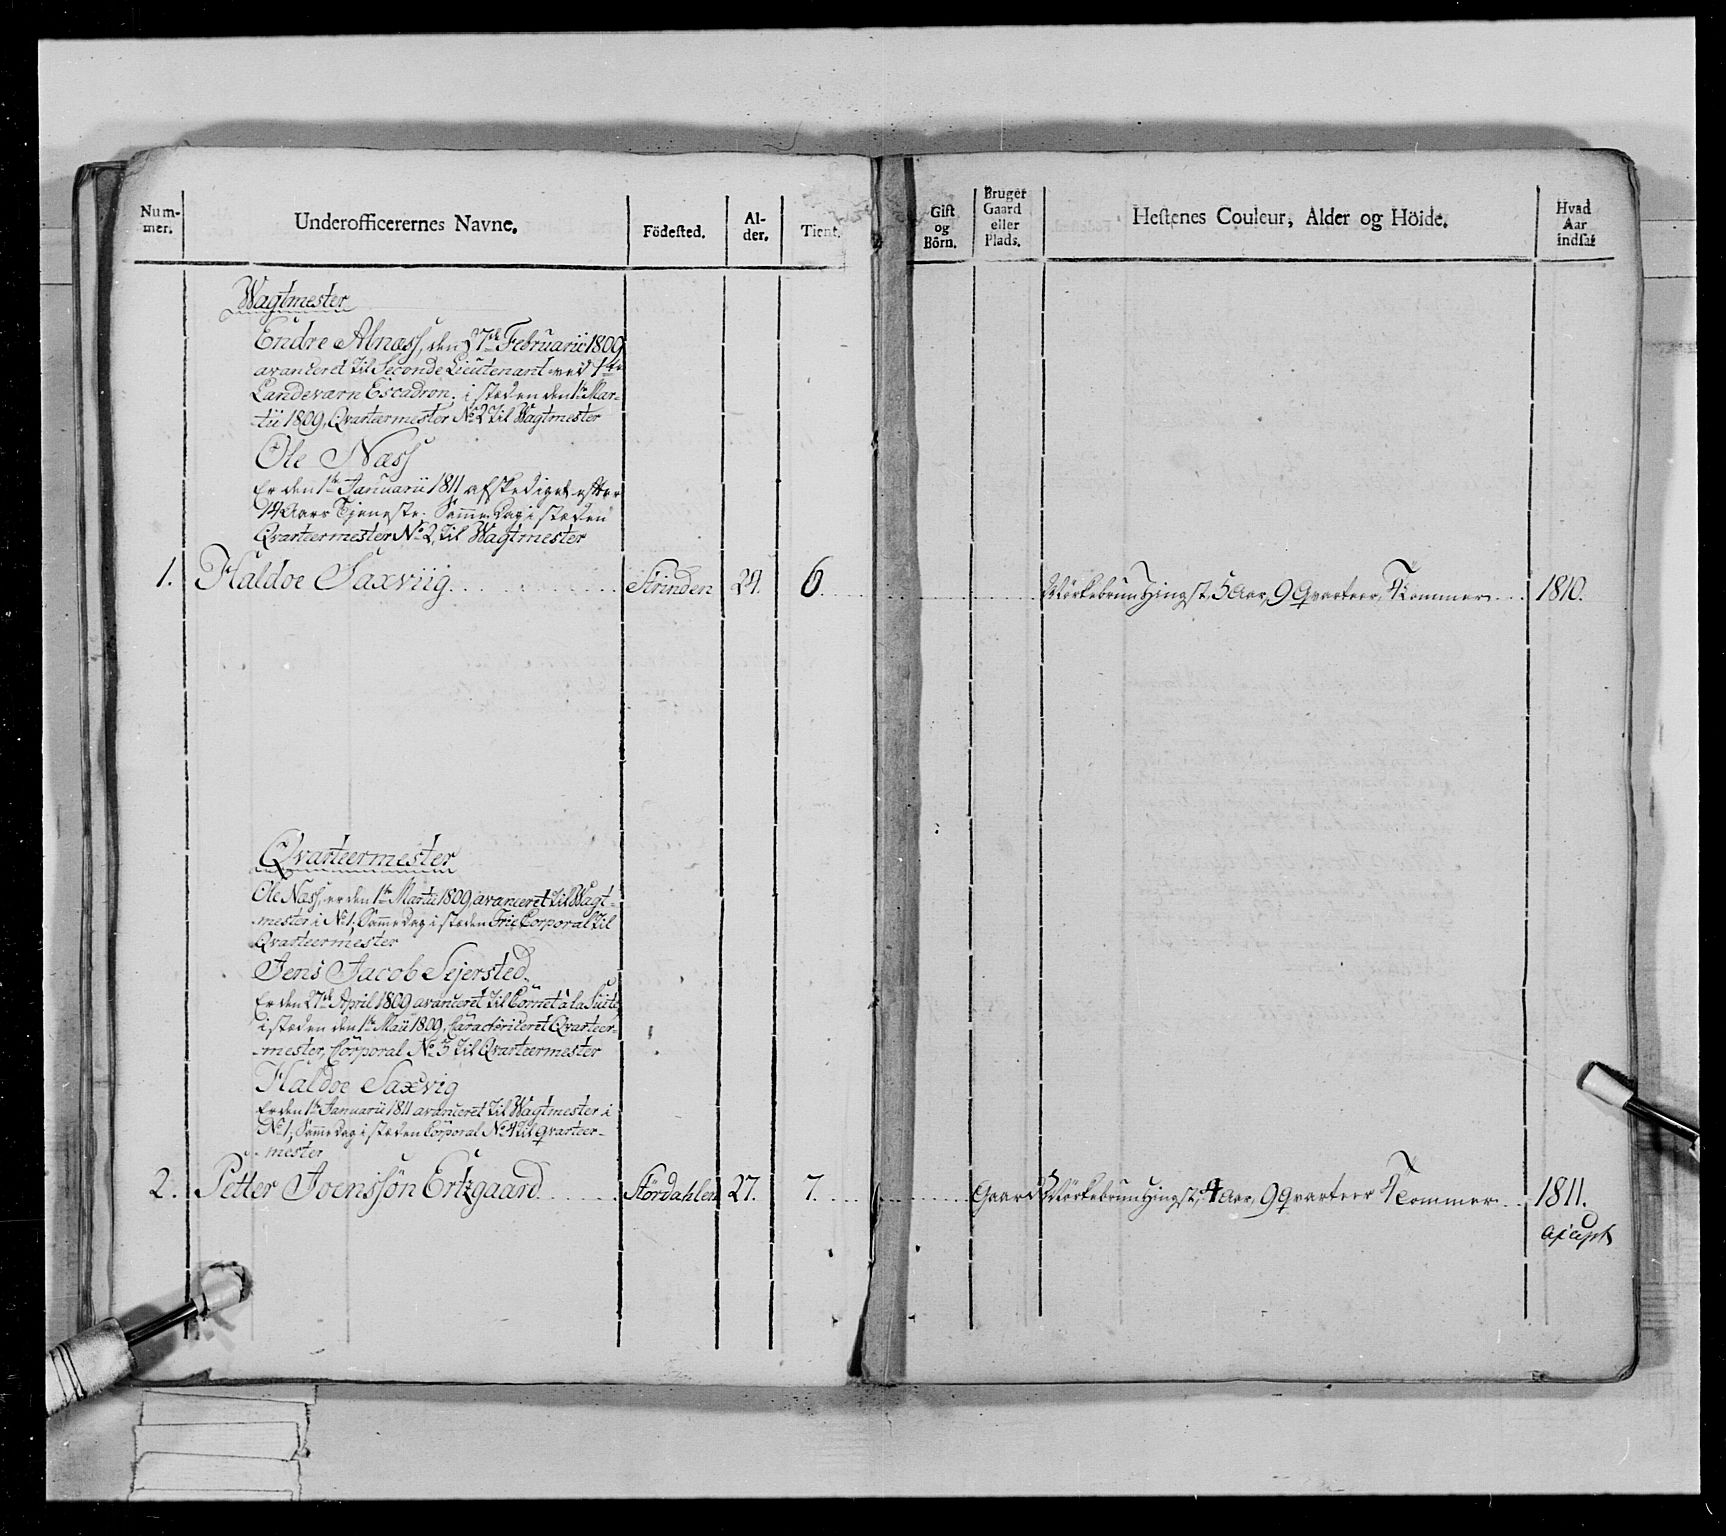 Num-
mer.
Underofficerernes Navne.
Födested.
Al-
der.
Tient.
Gift
og
Börn.
Bruger
Gaard
eller
Plads.
Hestenes Couleur, Alder og Höide.
Hvad
Aar
indsat
Wagtmester
Endre Alnæss, den 27de Februarii 1809
avanceret til Seconde Lieutenant ved 1ste
Landeværn Escadron, i stæden den 1te Mar-
tii 1809, Qvarteermester No 2 til Wagtmester
Ole Næss
Er den 1te Januarii 1811 afskediget efter
14 Aars Tjeneste. Samme Dag i stæden
Qvarteermester No 2, til Wagtmester
1. Haldoe Saxviig Strinden 24. 6. Mörkebrun Hingst, 5 Aar, 9 Qvarteer, Tommer 1810.
Qvarteermester
Ole Næss, er den 1te Martii 1809, avanceret til Wagt-
mester i No 1, Samme dag i stæden Frie Corporal til
Qvarteermester
Jens Jacob Sejersted
Er den 27de April 1809 avanceret til Cornet à la Suite,
i stæden den 1te Maii 1809, Caracteriseret Qvarteer-
mester, Corporal No 3 til Qvarteermester
Haldoe Saxvig
Er den 1te Januarii 1811 avanceret til Wagtmester i
No 1, Samme dag i stæden Corporal No 4 til Qvarteer-
mester
2. Petter Joenssön Ertzgaard Stördahlen 27. 7. Gaard Mörkebrun Hingst, 4 Aar, 9 Qvarteer Tommer 1811.